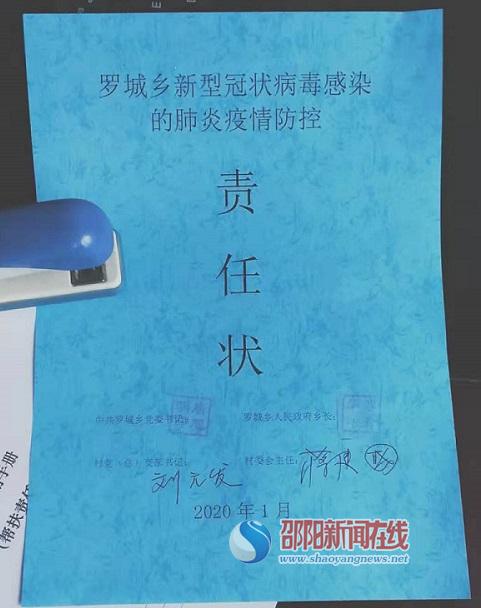 罗城乡新型冠状病毒感染
的肺炎疫情防控
责
任
状
中共罗城乡党委书记:
罗城乡人民政府乡长:
村党(总)支部书记:
刘元发
村委会主任:
2020年1月
邵阳新闻在线
www.shaoyangnews.net
(帮扶责任
手册